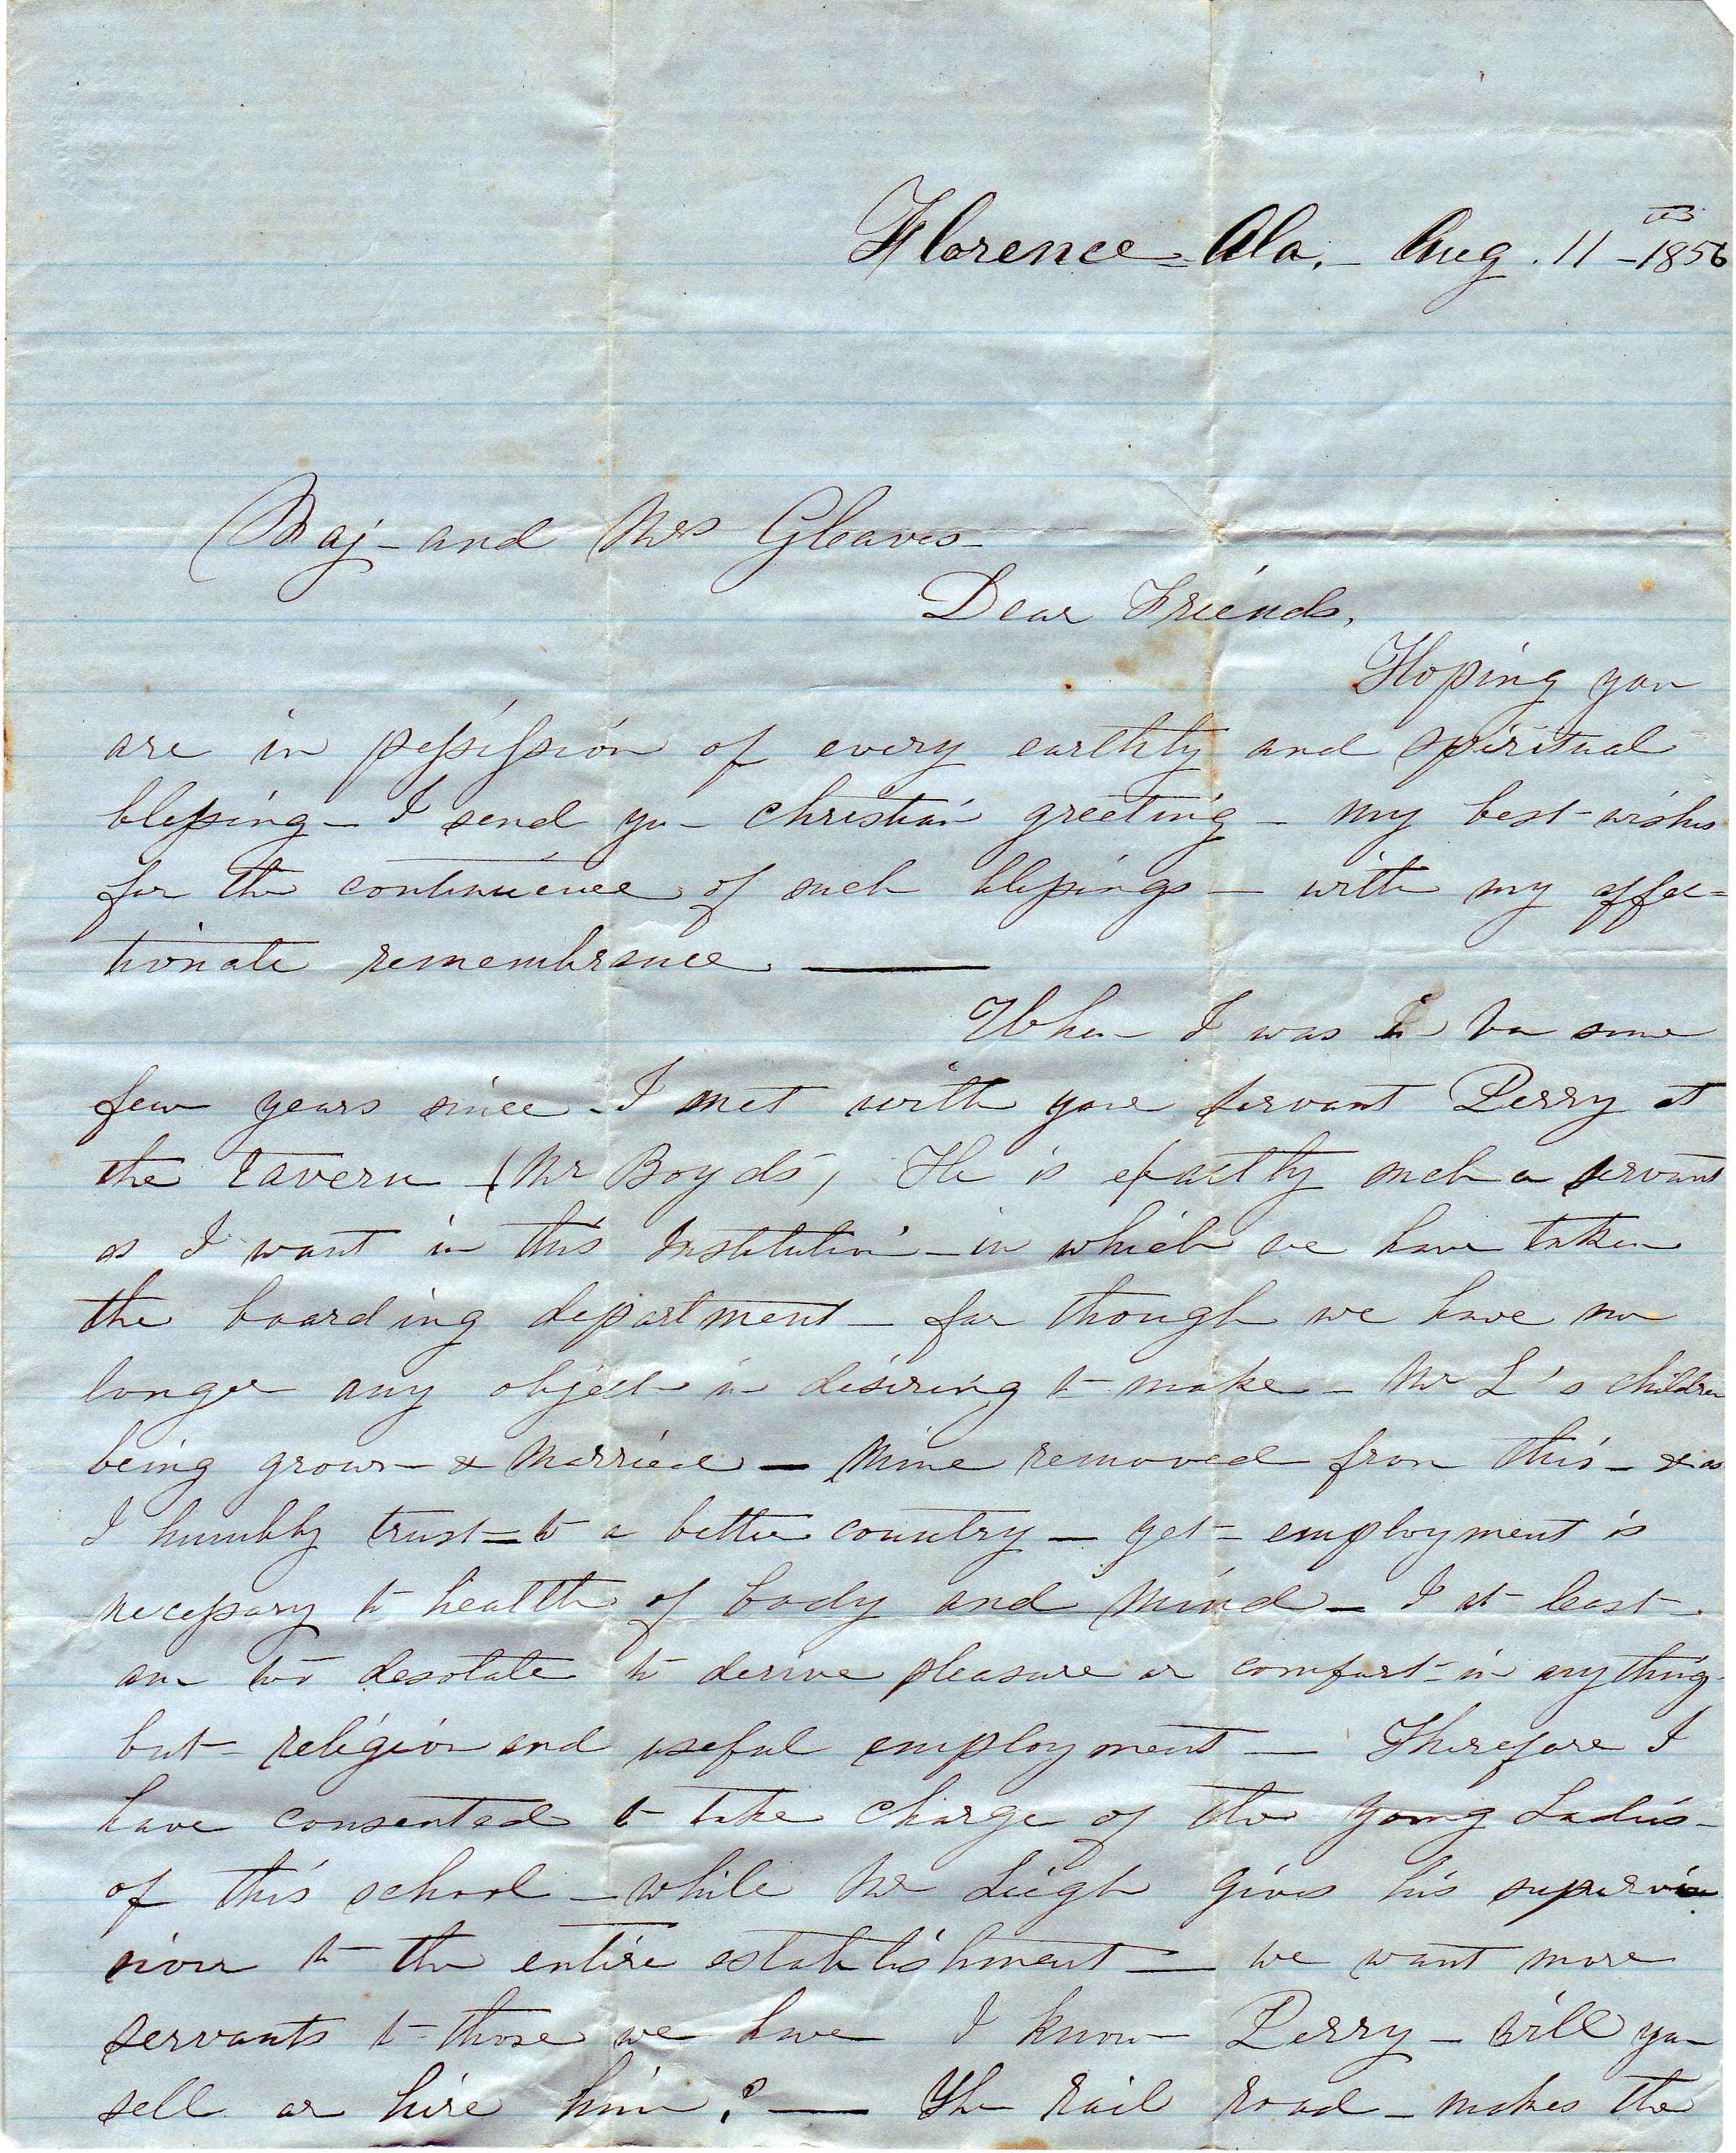 Florence - Ala. - Aug. 11th - 1856
Maj - and Mrs Gleaves -
Dear Friends,
Hoping you
are in possission of every earthly and spiritual
blessing - I send yu - christian greeting - my best - wishes
for the continuence of such blessings - with my affec=
tionate remembrance. —
When I was in Va some
few years since - I met with your servant Perry at
the tavern - (Mr Boyds) He is exactly such a servant
as I want in this Institution - in which we have taken
the boarding department - for though we have no
longer any object - in desiring to make - Mr L's children
being grown - & married — Mine removed from this - & as
I humbly trust - to a better country — yet - employment is
necessary to health of body and mind — I at least -
am too desolate to derive pleasure or comfort - in anything
but - religion and useful employment — Therefore I
have consented to take charge of the young Ladies -
of this school - while Mr Leigh gives his supervi
sion to the entire establishment — we want more
servants to those we have I know Perry - will yu
sell or hire him? — The rail road - makes the